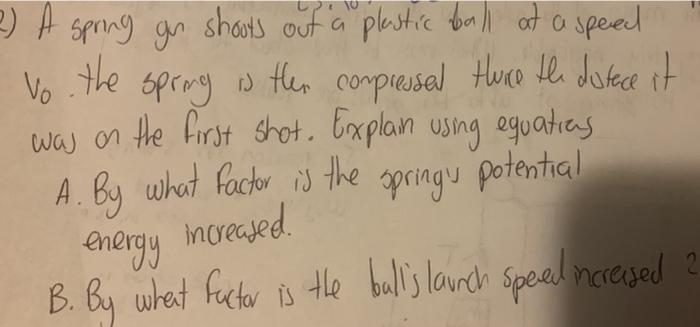 2) A spring gun shoots out a plastic ball at a speed
Vo. the spring is then compressed twice the distace it
was on the first shot. Explain using equations
A. By what factor is the spring's potential
energy increased.
B. By what factor is the ball's launch speed increased ?